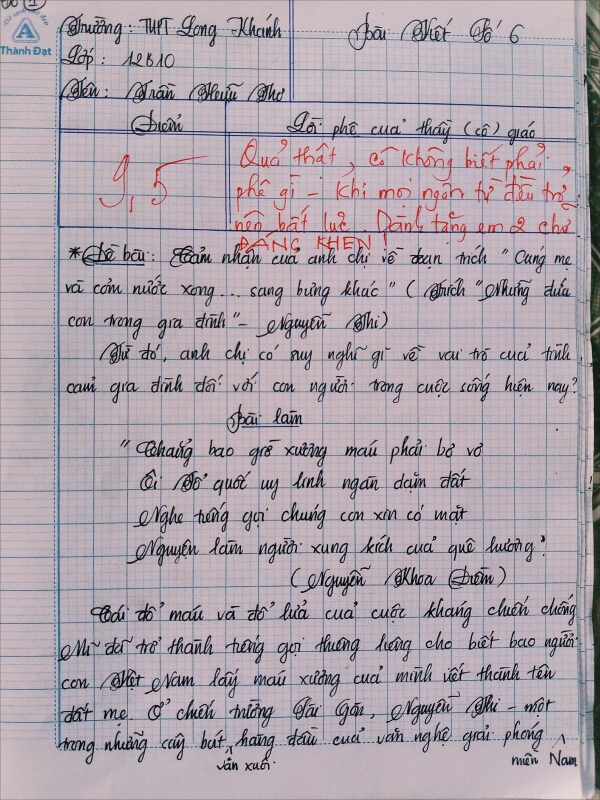 Thành Đạt
Trường: THPT Long Khánh
Bài Viết Số 6
Lớp: 12B10
Tên: Trần Hữu Thơ
Điểm
Lời phê của thầy (cô) giáo
9,5
Quả thật, cô không biết phải
phê gì - khi mọi ngôn từ đều trở
nên bất lực. Dành tặng em 2 chữ
ĐÁNG KHEN!
* Đề bài: Cảm nhận của anh chị về đoạn trích "Cúng mẹ
và cơm nước xong... sang bưng khác" (Trích "Những đứa
con trong gia đình" - Nguyễn Thi)
Từ đó, anh chị có suy nghĩ gì về vai trò của tình
cảm gia đình đối với con người trong cuộc sống hiện nay?
Bài làm
"Chẳng bao giờ xương máu phải bơ vơ
Ôi Tổ quốc uy linh ngàn dặm đất
Nghe tiếng gọi chúng con xin có mặt
Nguyện làm người xung kích của quê hương"
(Nguyễn Khoa Điềm)
Cái đổ máu và đổ lửa của cuộc kháng chiến chống
Mĩ đã trở thành tiếng gọi thiêng liêng cho biết bao người
con Việt Nam lấy máu xương của mình viết thành tên
đất mẹ. Ở chiến trường Sài Gòn, Nguyễn Thi - một
trong những cây bút văn xuôi hàng đầu của văn nghệ giải phóng miền Nam